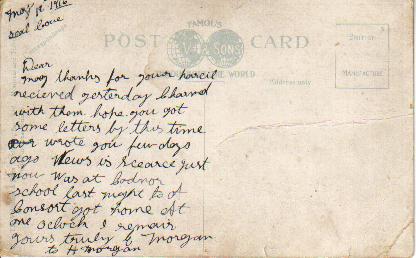 May 12 1916
Seal Cove
FAMOUS
POST CARD
& SONS
THE WORLD
Address only
MANUFACTURE
Dear
may thanks for your parcil
recieved yesterday Charmd
with them hope you got
some letters by this time
wrote you few days
ago News is scearce just
now was at
school last night to A
Consort got home At
one oclock I remain
yours truly C Morgan
to H Morgan